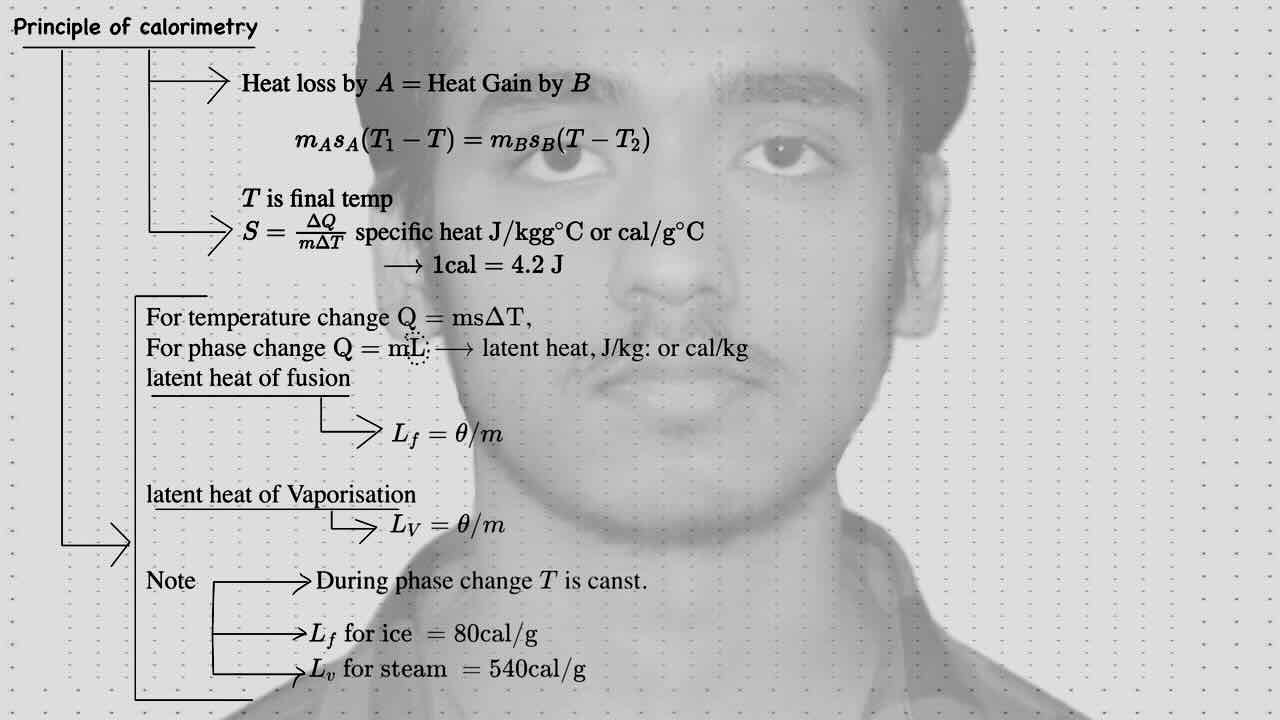 Principle of calorimetry
Heat loss by A = Heat Gain by B
m_A s_A(T₁ − T) = m_B s_B(T − T₂)
T is final temp
S = ΔQ/mΔT specific heat J/kgg°C or cal/g°C
⟶ 1cal = 4.2 J
For temperature change Q = msΔT,
For phase change Q = mL: ⟶ latent heat, J/kg: or cal/kg
latent heat of fusion
L_f = θ/m
latent heat of Vaporisation
L_V = θ/m
Note During phase change T is canst.
L_f for ice = 80cal/g
L_v for steam = 540cal/g